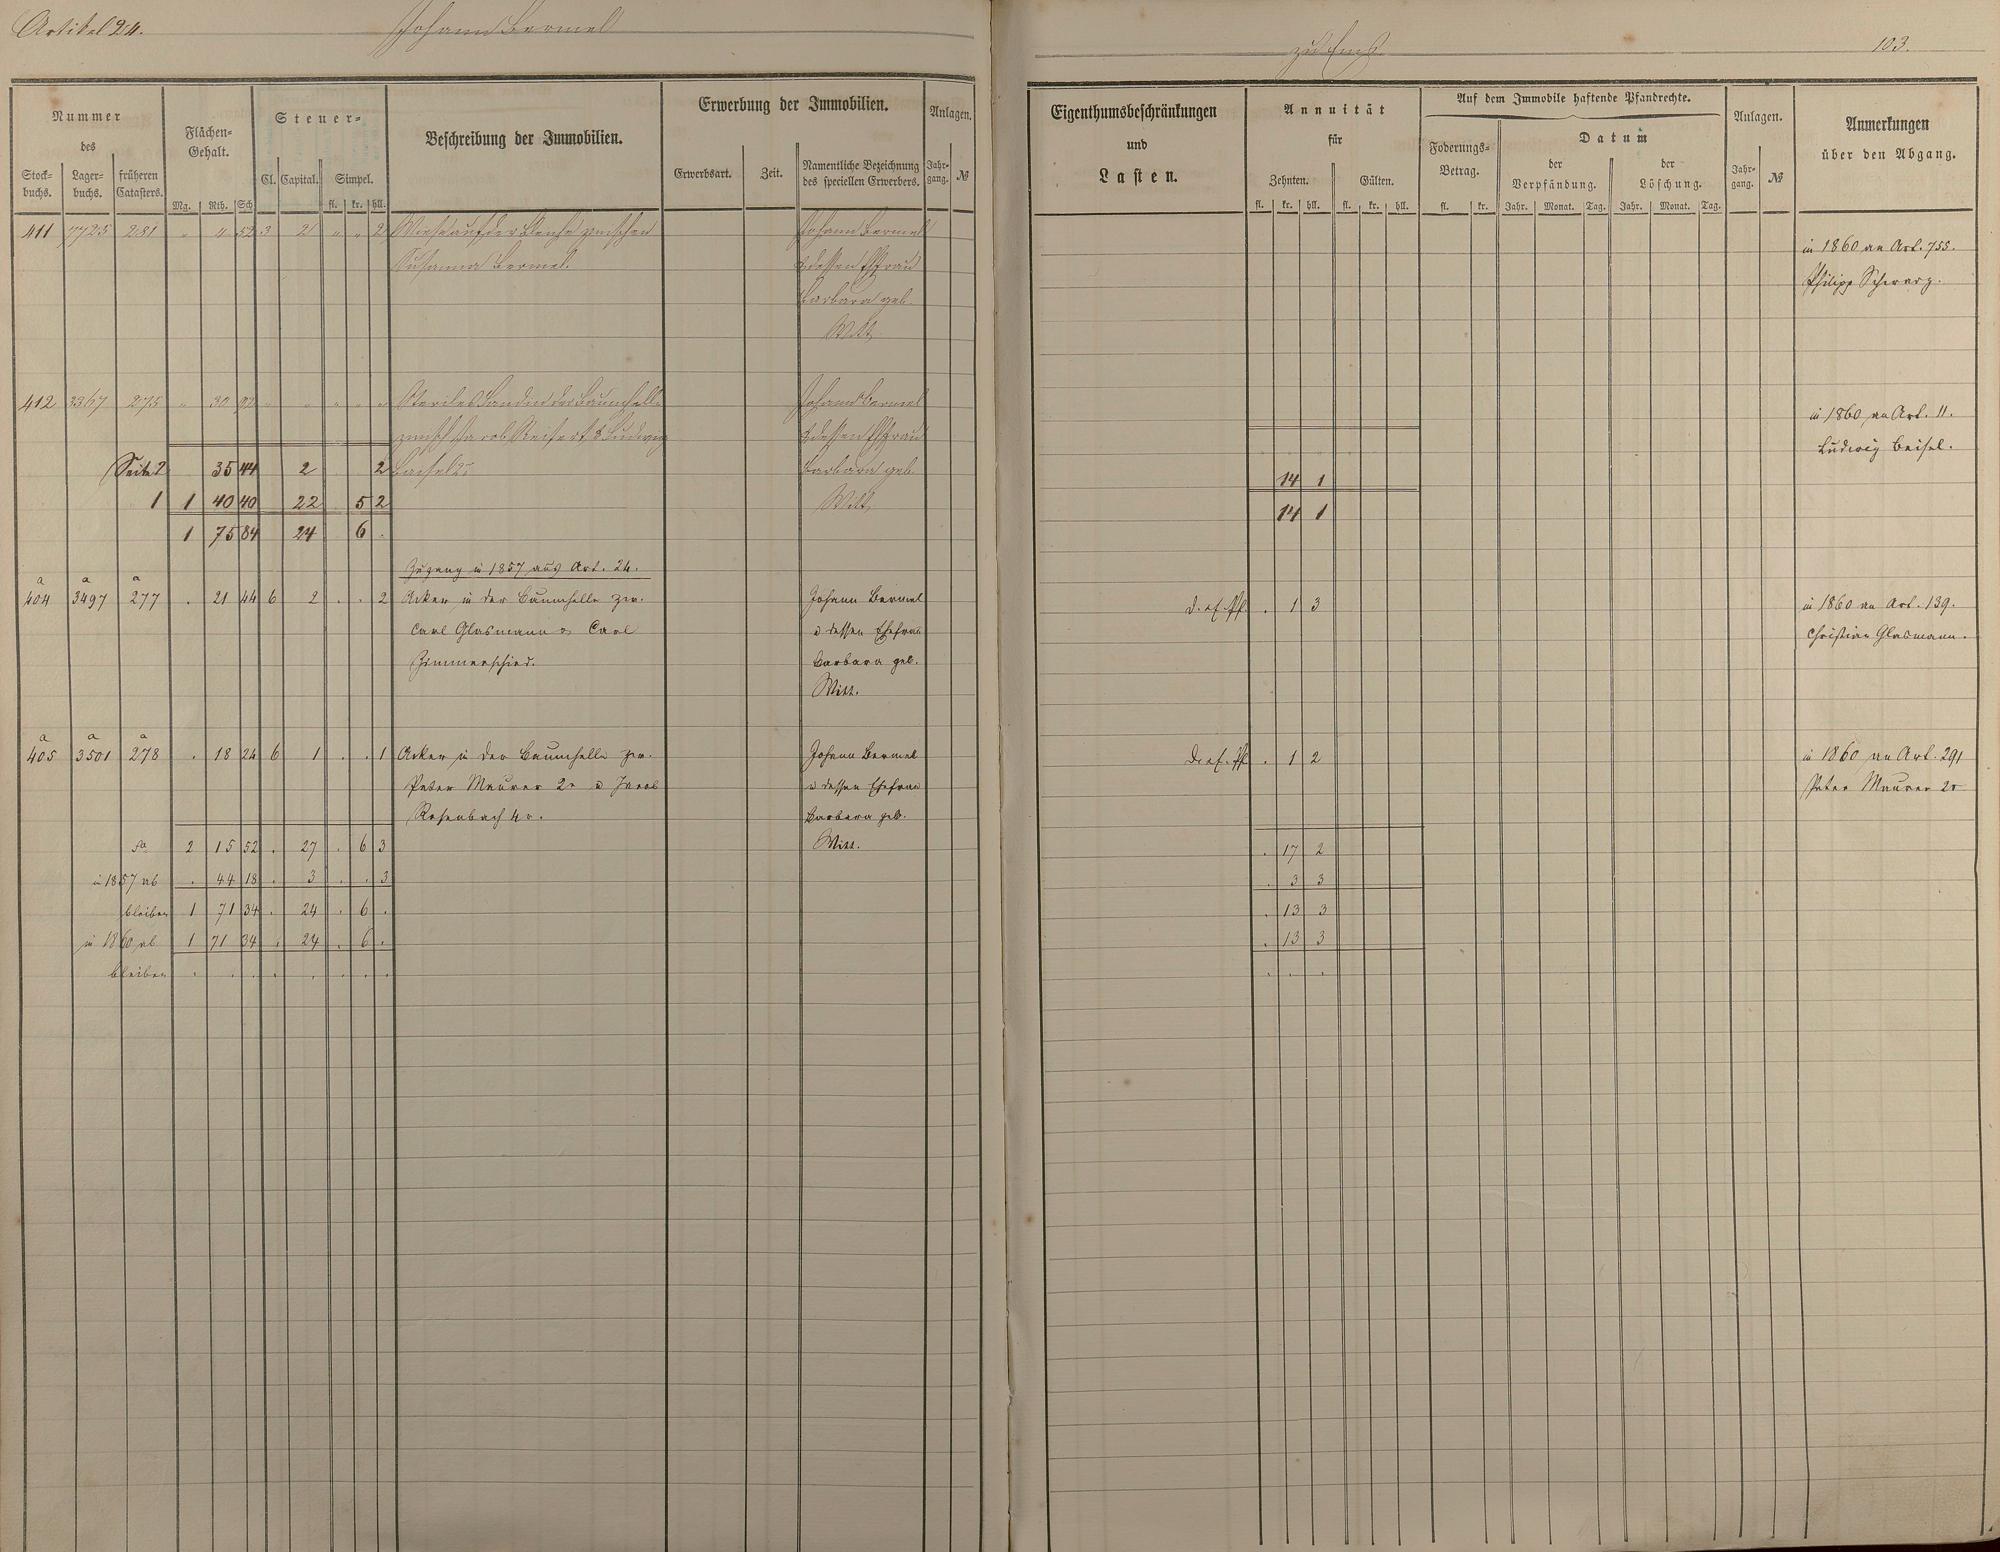 Artikel 24. Johann Bermel
zu Ems 103.
Nummer des
Stock-buchs. Lager-buchs. früheren Catasters.
Flächen-Gehalt.
Mg. Rth. Sch
Steuer-
Cl. Capital. Simpel.
fl. kr. hll.
Beschreibung der Immobilien.
Erwerbung der Immobilien.
Erwerbsart. Zeit. Namentliche Bezeichnung des speciellen Erwerbers.
Anlagen.
Jahr-gang. №
Eigenthumsbeschränkungen und Lasten.
Annuität für
Zehnten. Gülten.
fl. kr. hll. fl. kr. hll.
Auf dem Immobile haftende Pfandrechte.
Foderungs-Betrag.
fl. kr.
Datum
der Verpfändung. der Löschung.
Jahr. Monat. Tag. Jahr. Monat. Tag.
Anlagen.
Jahr-gang. №
Anmerkungen über den Abgang.
411 7725 281 " 4 52 3 2 " " 2 Wiese auf der Bleiche zwischen Johann Bermel in 1860 an Art. 755.
Susanna Bermel. & dessen Ehfrau Philipp Schwarz.
Barbara geb.
Witt
412 3367 275 " 30 92 " " " " " Steriles Land in der Baumhelle Johann Bermel in 1860 an Art. 11.
zwisch Jacob Reifert & Ludwig & dessen Ehfrau Ludwig Beisel.
Seite 2 35 44 2 2 Beisel 2r Barbara geb. 14 1
1 1 40 40 22 5 2 Witt 14 1
1 75 84 24 6 .
Zugang in 1857 aus Art. 24.
a a a
404 3497 277 . 21 44 6 2 . . 2 Acker in der Baumhelle zw. Johann Bermel . 1 3 in 1860 an Art. 139.
Carl Glasmann & Carl u dessen Ehefrau Christian Glasmann.
Zimmerschied. Barbara geb.
Witt.
a a a
405 3501 278 . 18 24 6 1 . . 1 Acker in der Baumhelle zw. Johann Bermel . 1 2 in 1860 an Art. 291
Peter Maurer 2r u Jacob u dessen Ehefrau Peter Maurer 2r
Rosenbach 4r. Barbara geb.
Sa 2 15 52 . 27 . 6 3 Witt. . 17 2
in 1857 ab . 44 18 . 3 . . 3 . 3 3
bleiben 1 71 34 . 24 . 6 . . 13 3
in 1860 ab 1 71 34 . 24 . 6 . . 13 3
bleiben . . . . . . . . . . .